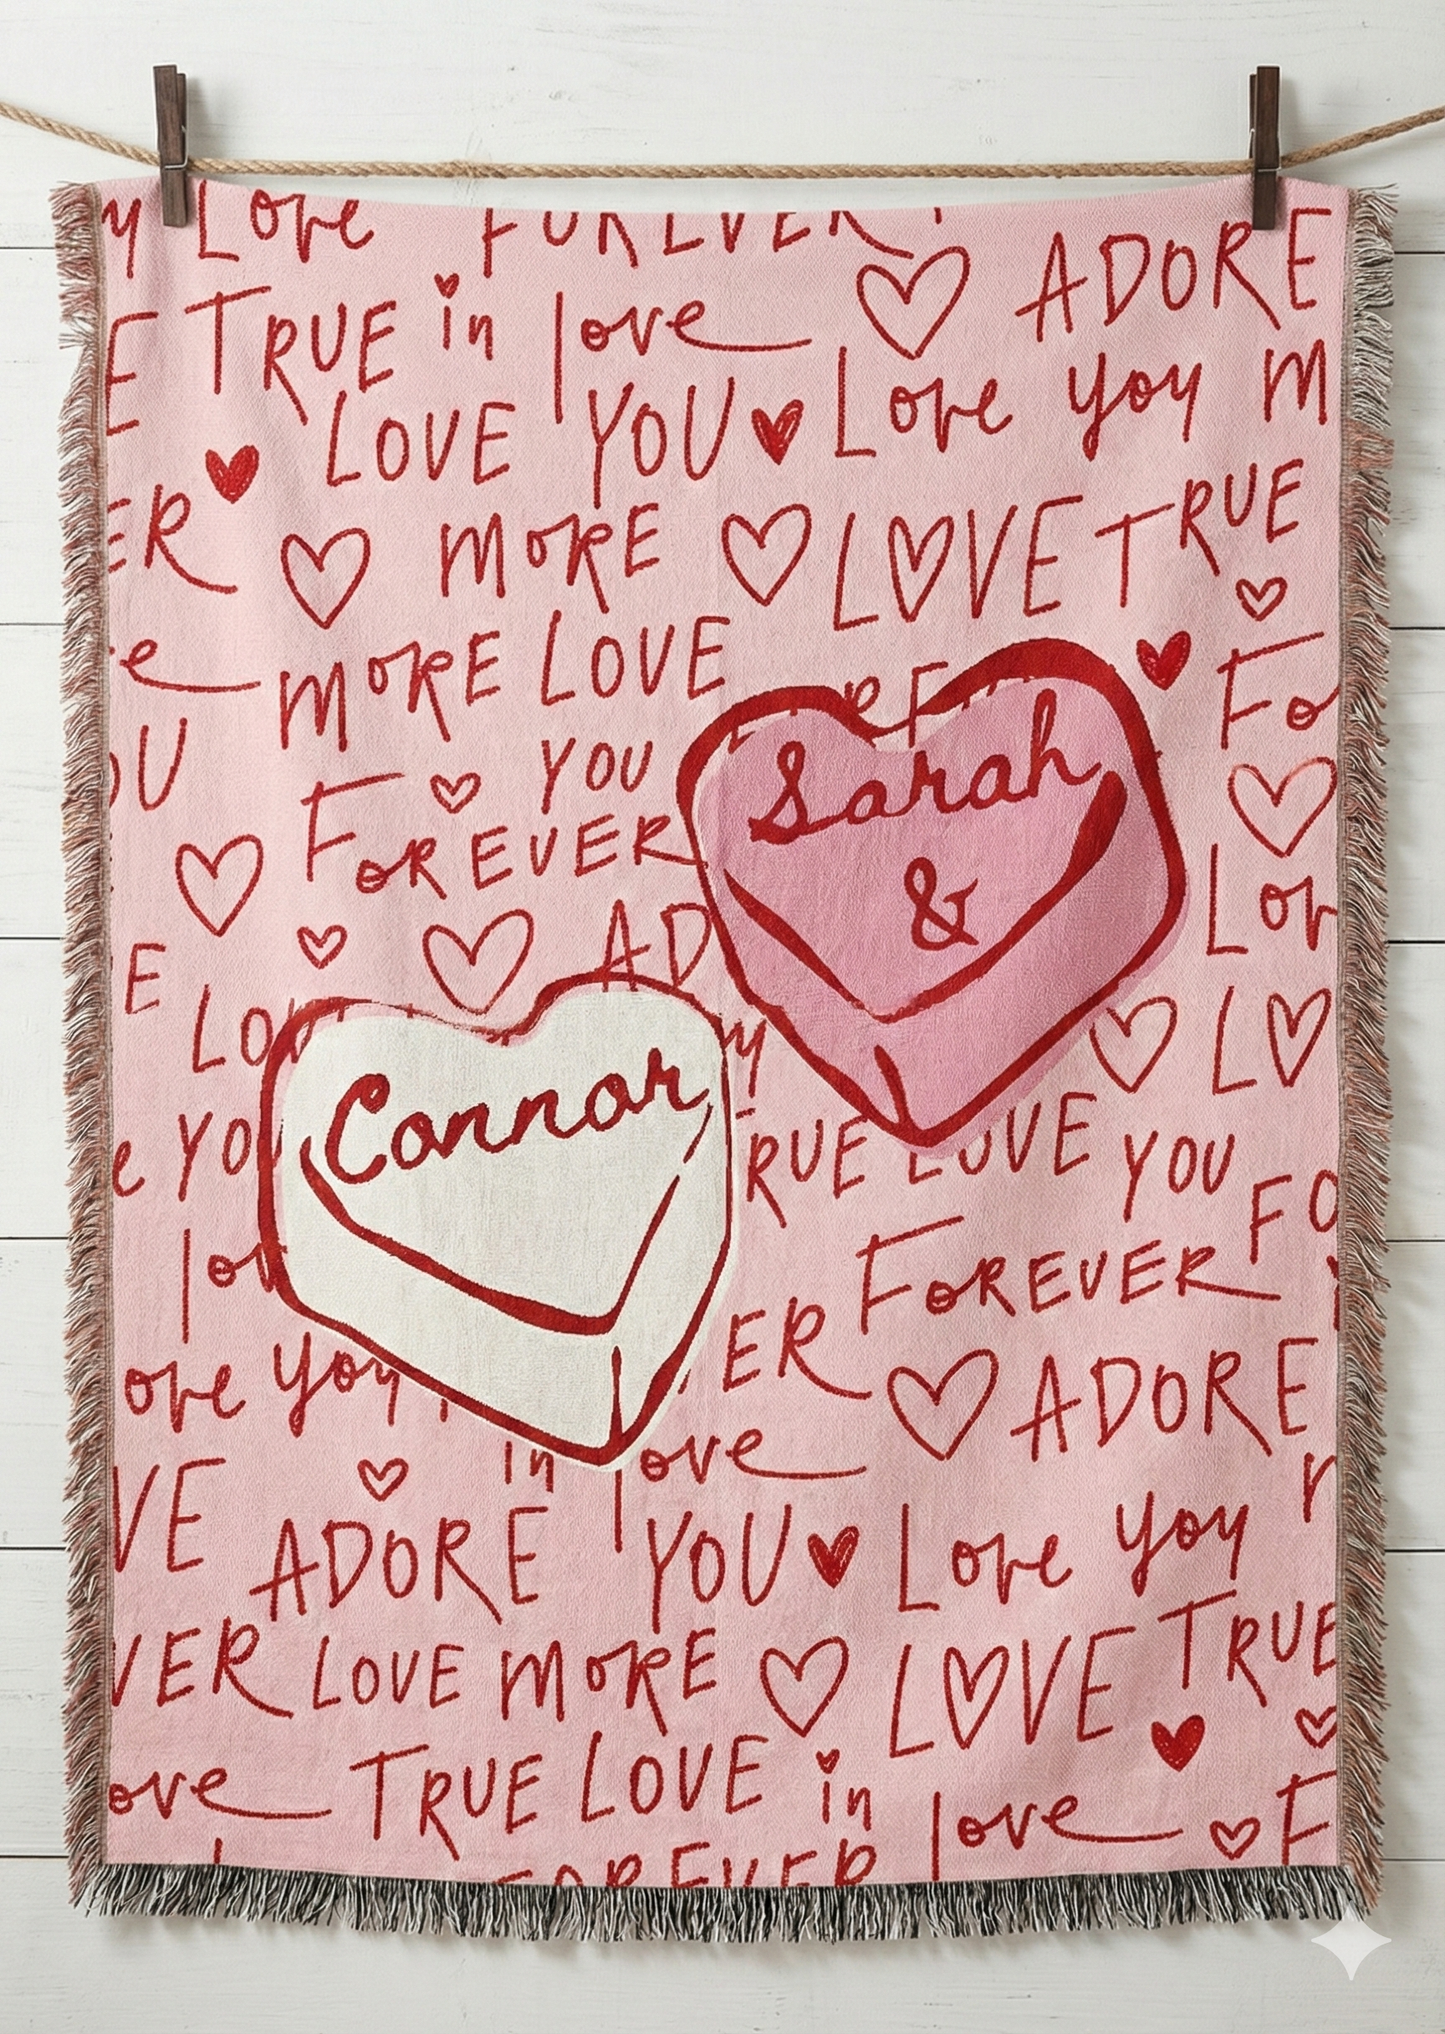 y Love FOREVER
ADORE
E TRUE in love
LOVE YOU Love you M
ER MORE LOVE TRUE
e MORE LOVE
Fo
OU YOU
Sarah
&
FOREVER
Lov
E AD
LO
LOV
Connor
e YO RUE LOVE YOU
FO
lov FOREVER
ove you ER ADORE
in love
VE ADORE YOU Love you
VER LOVE MORE LOVE TRUE
ove TRUE LOVE in love F
FOREVER